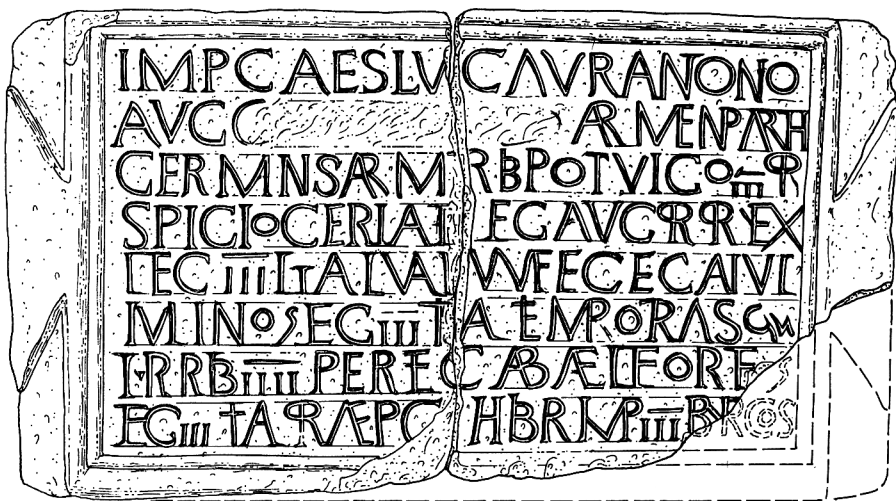 IMPCAESLVCAVRANTONO
AVGC ARMENPARH
GERMNSARM RBPOTVICOIIIP
SPICIOCERIAL LEGAVGPRPRVEX
LEGIIIITALVAL VMFECECAIVLI
MINOSEGIIIT A TEMPORASCM
I RRBIIIIPERFECABAELFORT
EGIIITAPRAEPC HBRIMPIIIIBVRROS